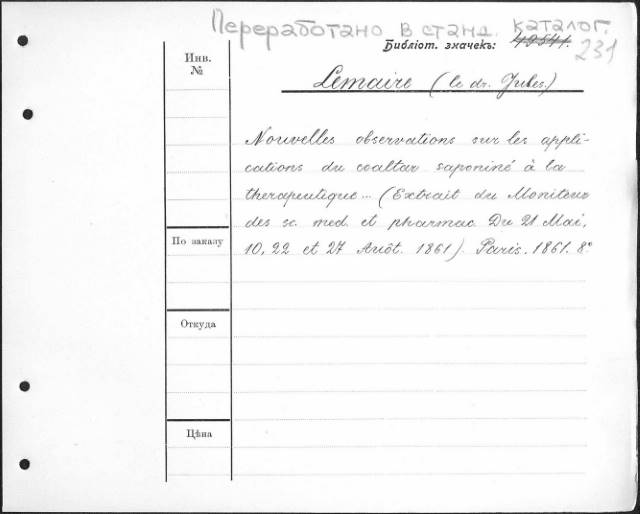 Переработано в станд. каталог.
Библіот. значекъ: 49541.
231
Инв.
№
Lemaire (le dr. Jules)
Nouvelles observations sur les appli-
cations du coaltar saponiné à la
therapeutique... (Extrait du Moniteur
des sc. med. et pharmac. Du 21 Mai,
10, 22 et 27 Auôt. 1861). Paris. 1861. 8°
По заказу
Откуда
Цѣна